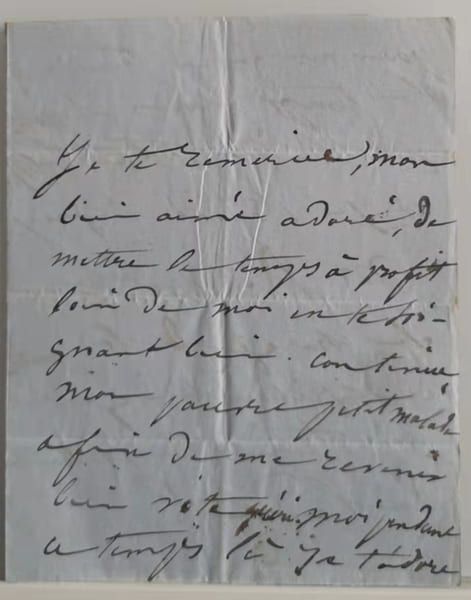 Je te remercie, mon
bien aimé adoré, de
mettre le temps à profit
loin de moi en te soi-
gnant bien. Continue
mon pauvre petit malade
afin de me revenir
bien vite guéri. moi pendant
ce temps là je t'adore